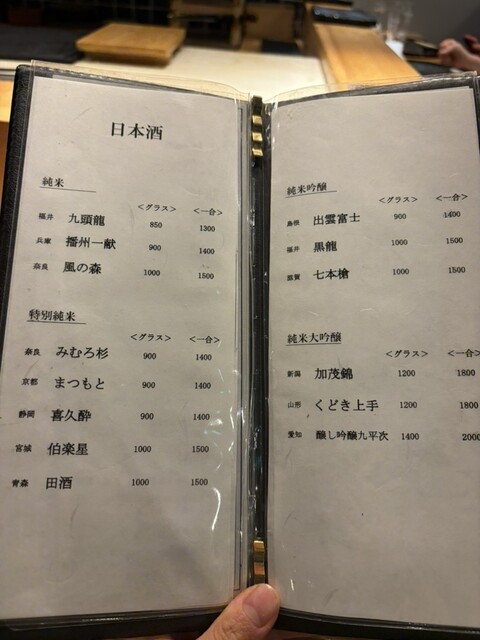 日本酒
純米
<グラス> <一合>
福井 九頭龍 850 1300
兵庫 播州一献 900 1400
奈良 風の森 1000 1500
特別純米
<グラス> <一合>
奈良 みむろ杉 900 1400
京都 まつもと 900 1400
静岡 喜久酔 900 1400
宮城 伯楽星 1000 1500
青森 田酒 1000 1500
純米吟醸
<グラス> <一合>
島根 出雲富士 900 1400
福井 黒龍 1000 1500
滋賀 七本槍 1000 1500
純米大吟醸
<グラス> <一合>
新潟 加茂錦 1200 1800
山形 くどき上手 1200 1800
愛知 醸し吟醸九平次 1400 2000